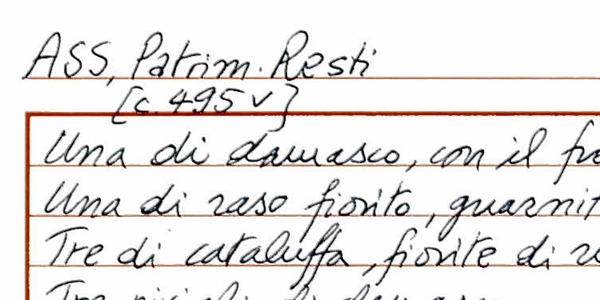 ASS, Patrim. Resti
[c. 495 v]
Una di damasco, con il
Una di raso fiorito,
Tre di cataluffa, fiorite di